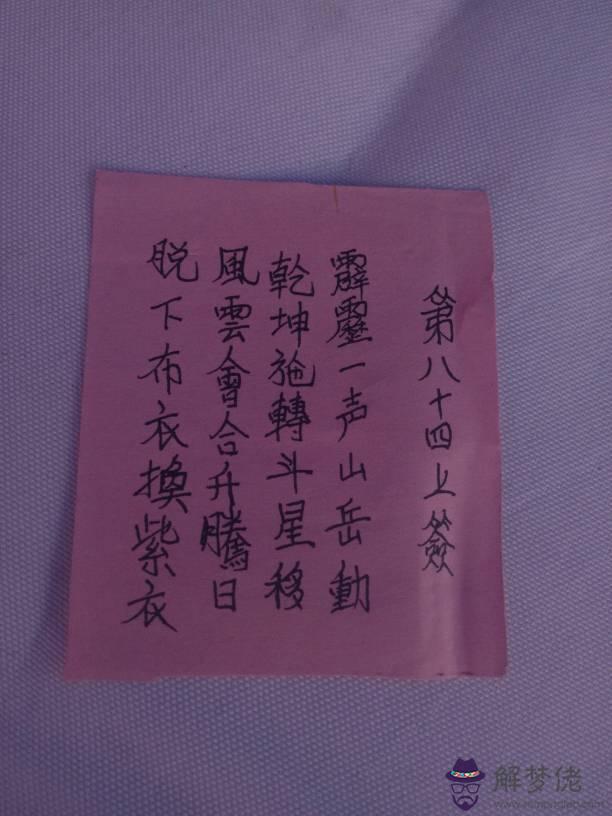 第八十四上簽
霹靂一声山岳動
乾坤旋轉斗星移
風雲會合升騰日
脱下布衣換紫衣
解梦佬